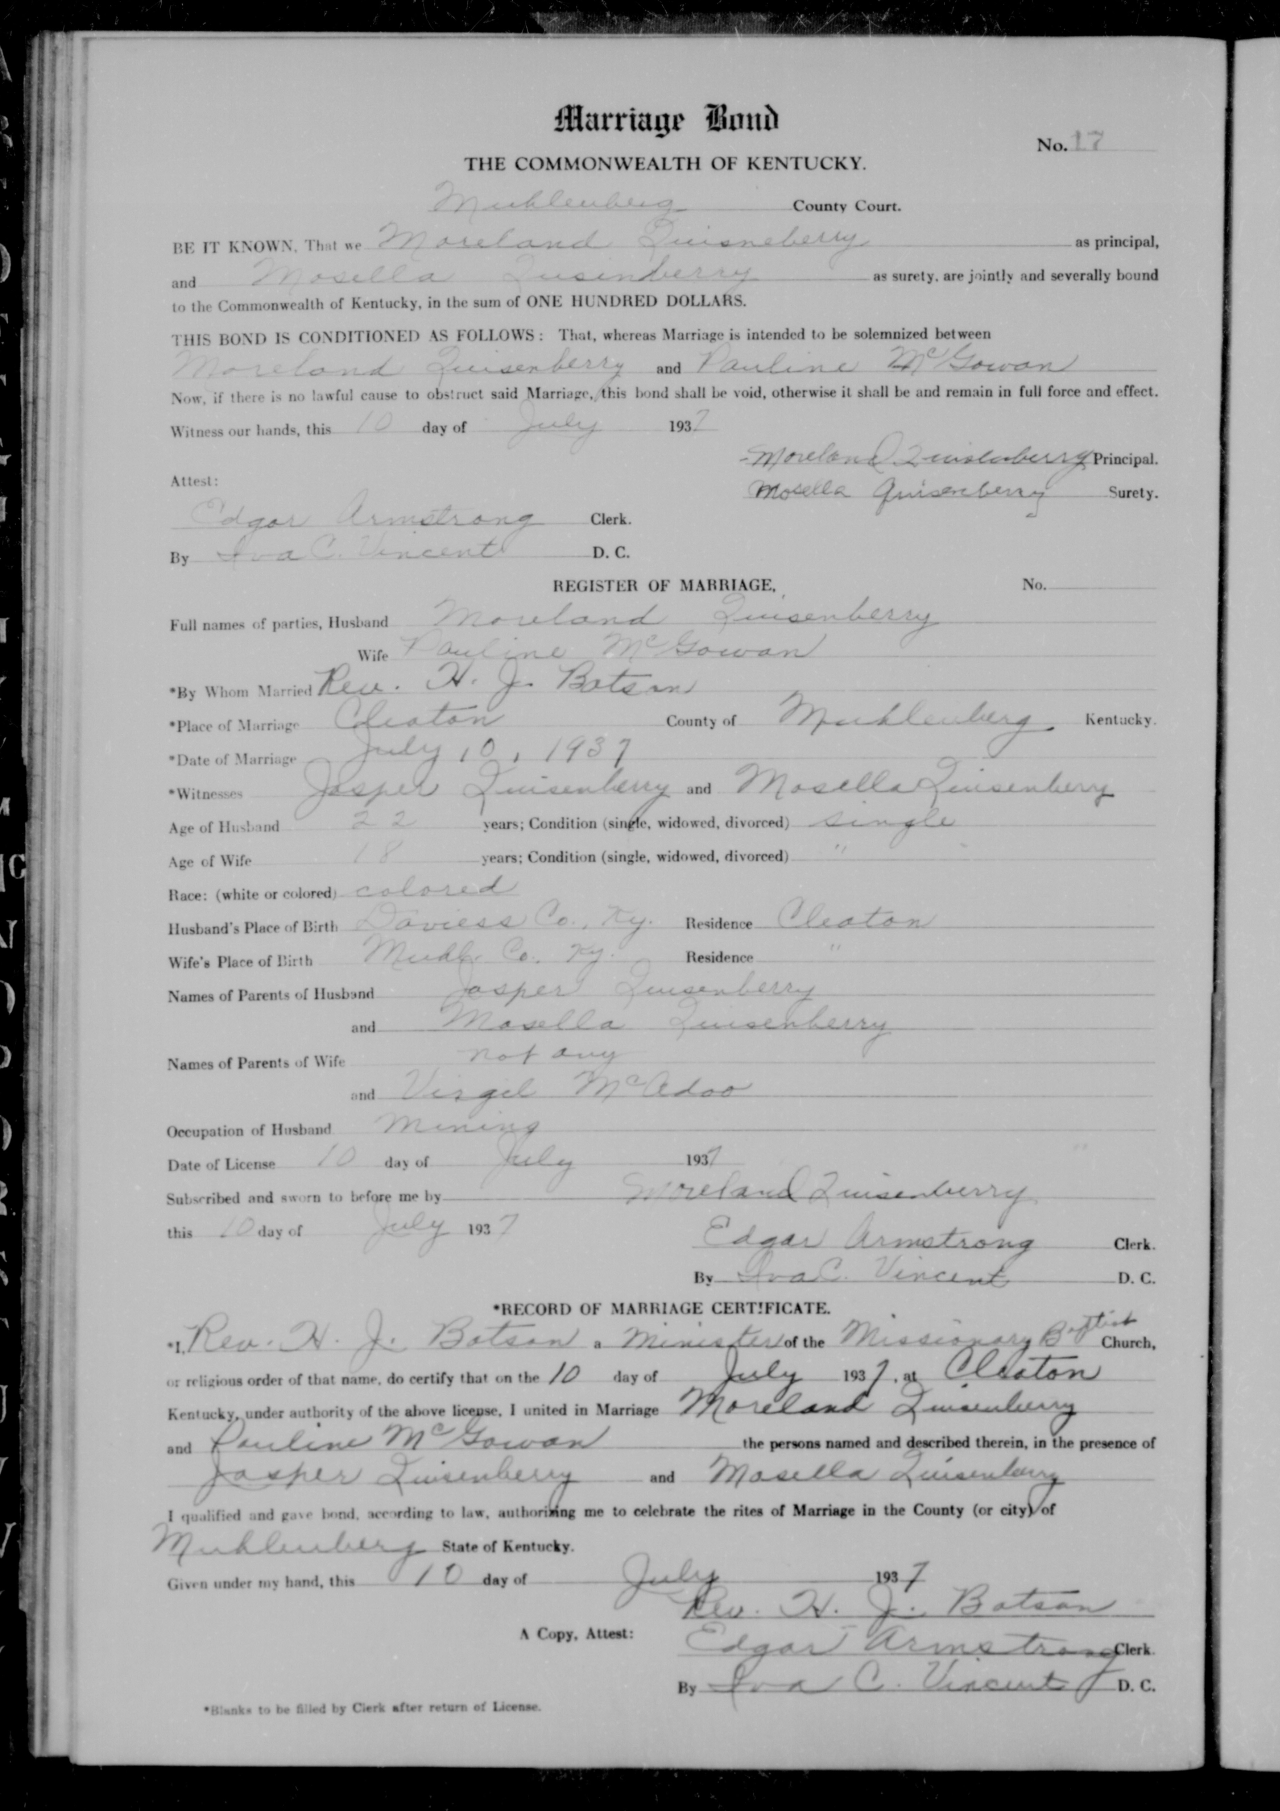 Marriage Bond
No. 17
THE COMMONWEALTH OF KENTUCKY.
Muhlenberg County Court.
BE IT KNOWN, That we Moreland Quisneberry as principal,
and Mosella Quisenberry as surety, are jointly and severally bound
to the Commonwealth of Kentucky, in the sum of ONE HUNDRED DOLLARS.
THIS BOND IS CONDITIONED AS FOLLOWS: That, whereas Marriage is intended to be solemnized between
Moreland Quisenberry and Pauline McGowan
Now, if there is no lawful cause to obstruct said Marriage, this bond shall be void, otherwise it shall be and remain in full force and effect.
Witness our hands, this 10 day of July 1937
Moreland Quisenberry Principal.
Attest:
Mosella Quisenberry Surety.
Edgar Armstrong Clerk.
By Iva C. Vincent D. C.
REGISTER OF MARRIAGE, No.
Full names of parties, Husband Moreland Quisenberry
Wife Pauline McGowan
*By Whom Married Rev. H. J. Botson
*Place of Marriage Cleaton County of Muhlenberg Kentucky.
*Date of Marriage July 10, 1937
*Witnesses Jasper Quisenberry and Mosella Quisenberry
Age of Husband 22 years; Condition (single, widowed, divorced) single
Age of Wife 18 years; Condition (single, widowed, divorced) "
Race: (white or colored) colored
Husband's Place of Birth Daviess Co., Ky. Residence Cleaton
Wife's Place of Birth Muhl. Co. Ky. Residence "
Names of Parents of Husband Jasper Quisenberry
and Mosella Quisenberry
Names of Parents of Wife not any
and Virgil McAdoo
Occupation of Husband Mining
Date of License 10 day of July 1937
Subscribed and sworn to before me by Moreland Quisenberry
this 10 day of July 1937
Edgar Armstrong Clerk.
By Iva C. Vincent D. C.
*RECORD OF MARRIAGE CERTIFICATE.
*I, Rev. H. J. Botson a Minister of the Missionary Baptist Church,
or religious order of that name, do certify that on the 10 day of July 1937, at Cleaton
Kentucky, under authority of the above license, I united in Marriage Moreland Quisenberry
and Pauline McGowan the persons named and described therein, in the presence of
Jasper Quisenberry and Mosella Quisenberry
I qualified and gave bond, according to law, authorizing me to celebrate the rites of Marriage in the County (or city) of
Muhlenberg State of Kentucky.
Given under my hand, this 10 day of July 1937
Rev. H. J. Botson
A Copy, Attest: Edgar Armstrong Clerk.
By Iva C. Vincent D. C.
*Blanks to be filled by Clerk after return of License.